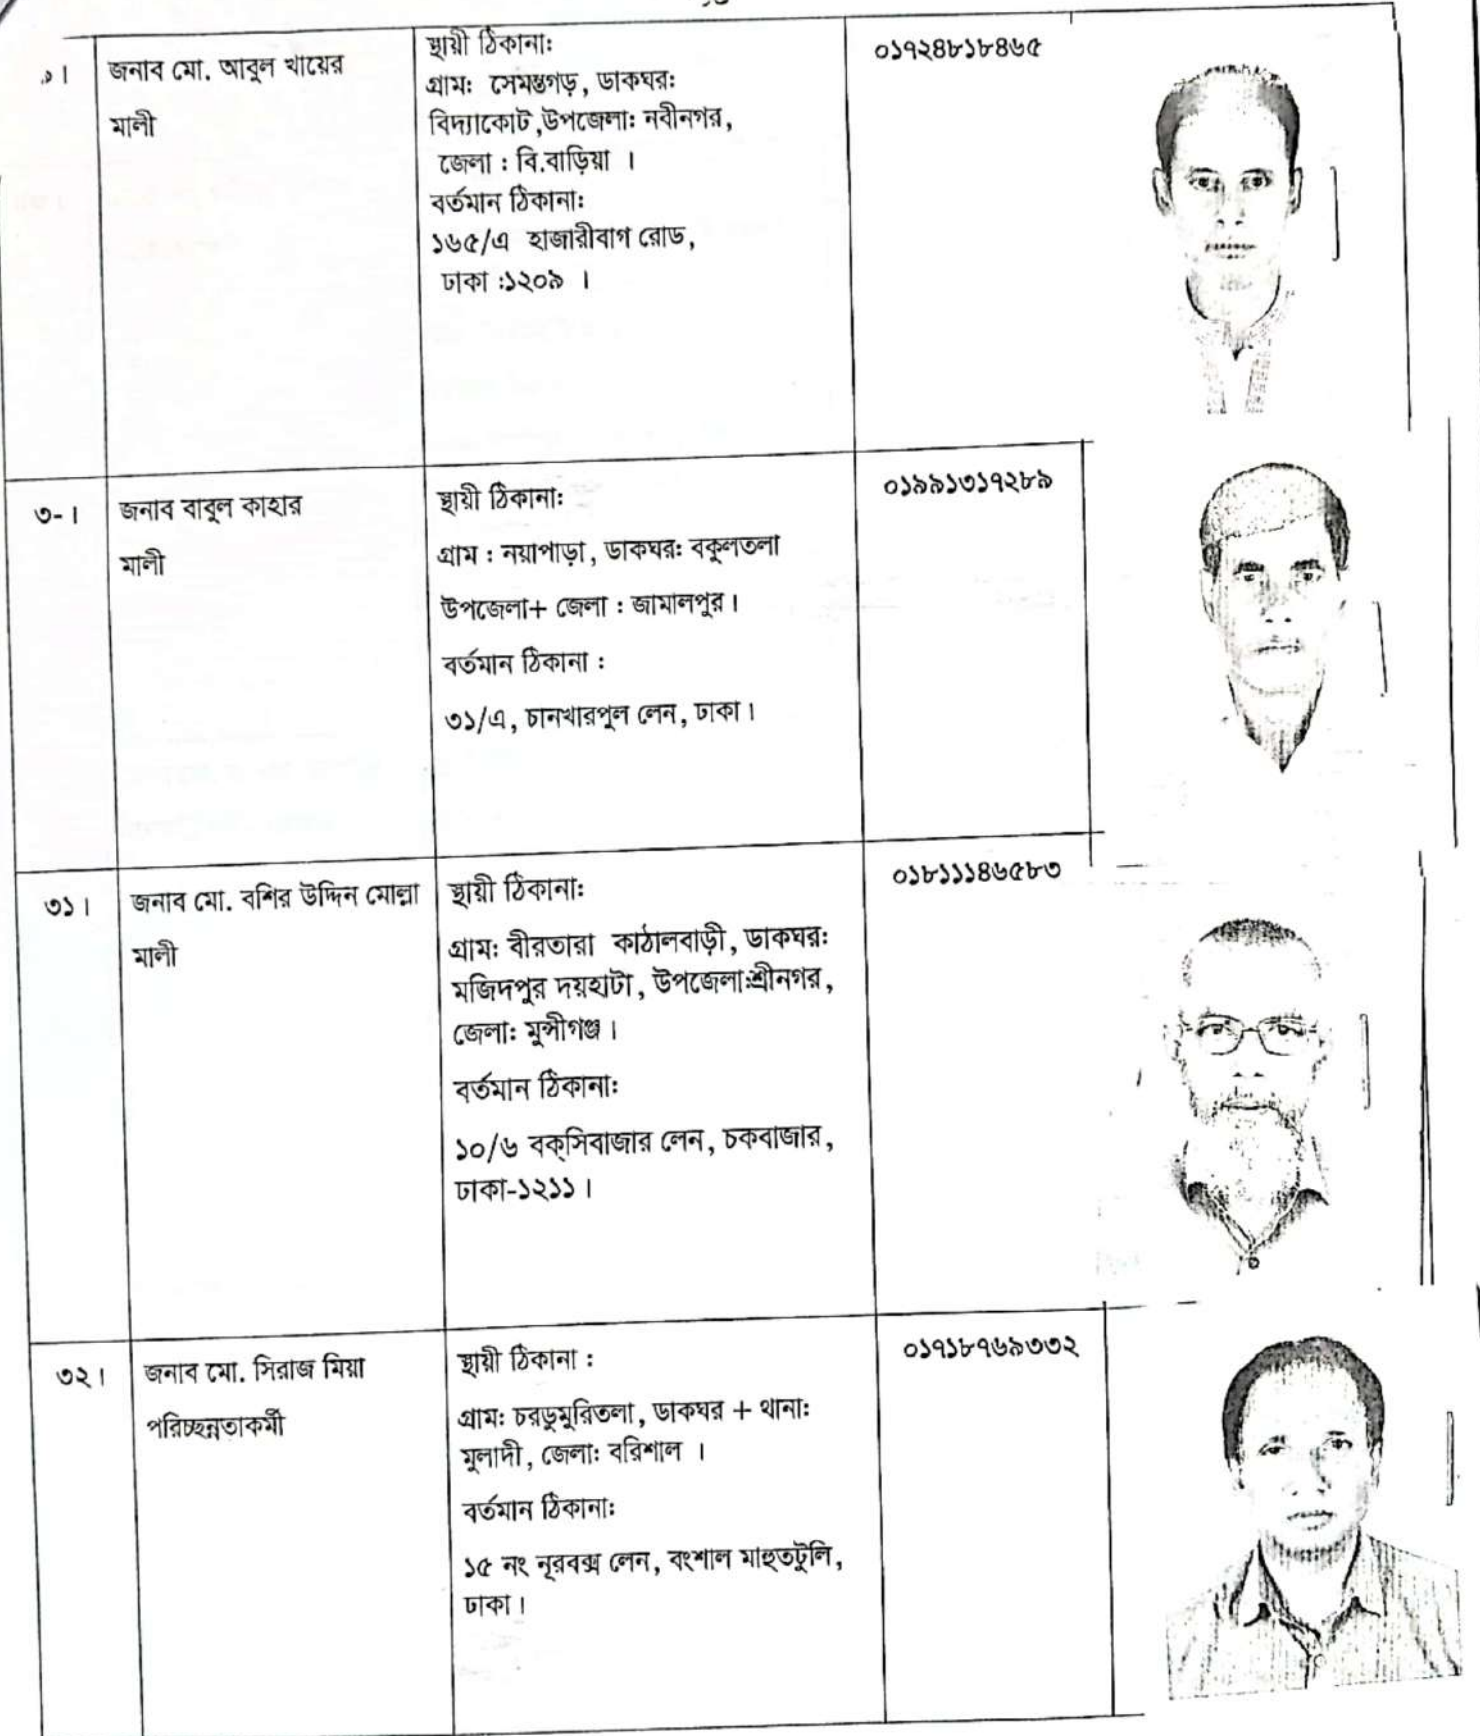 ৯।
জনাব মো. আবুল খায়ের
মালী
স্থায়ী ঠিকানা:
গ্রাম: সেমন্তগড়, ডাকঘর:
বিদ্যাকোট ,উপজেলা: নবীনগর,
জেলা : বি.বাড়িয়া ।
বর্তমান ঠিকানা:
১৬৫/এ হাজারীবাগ রোড,
ঢাকা :১২০৯ ।
০১৭২৪৮১৮৪৬৫
৩-।
জনাব বাবুল কাহার
মালী
স্থায়ী ঠিকানা:
গ্রাম : নয়াপাড়া, ডাকঘর: বকুলতলা
উপজেলা+ জেলা : জামালপুর।
বর্তমান ঠিকানা :
৩১/এ, চানখারপুল লেন, ঢাকা।
০১৯৯১৩১৭২৮৯
৩১।
জনাব মো. বশির উদ্দিন মোল্লা
মালী
স্থায়ী ঠিকানা:
গ্রাম: বীরতারা কাঠালবাড়ী, ডাকঘর:
মজিদপুর দয়হাটা, উপজেলা:শ্রীনগর,
জেলা: মুন্সীগঞ্জ।
বর্তমান ঠিকানা:
১০/৬ বক্‌সিবাজার লেন, চকবাজার,
ঢাকা-১২১১।
০১৮১১১৪৬৫৮৩
৩২।
জনাব মো. সিরাজ মিয়া
পরিচ্ছন্নতাকর্মী
স্থায়ী ঠিকানা :
গ্রাম: চরডুমুরিতলা, ডাকঘর + থানা:
মুলাদী, জেলা: বরিশাল ।
বর্তমান ঠিকানা:
১৫ নং নূরবক্স লেন, বংশাল মাহুতটুলি,
ঢাকা।
০১৭১৮৭৬৯৩৩২